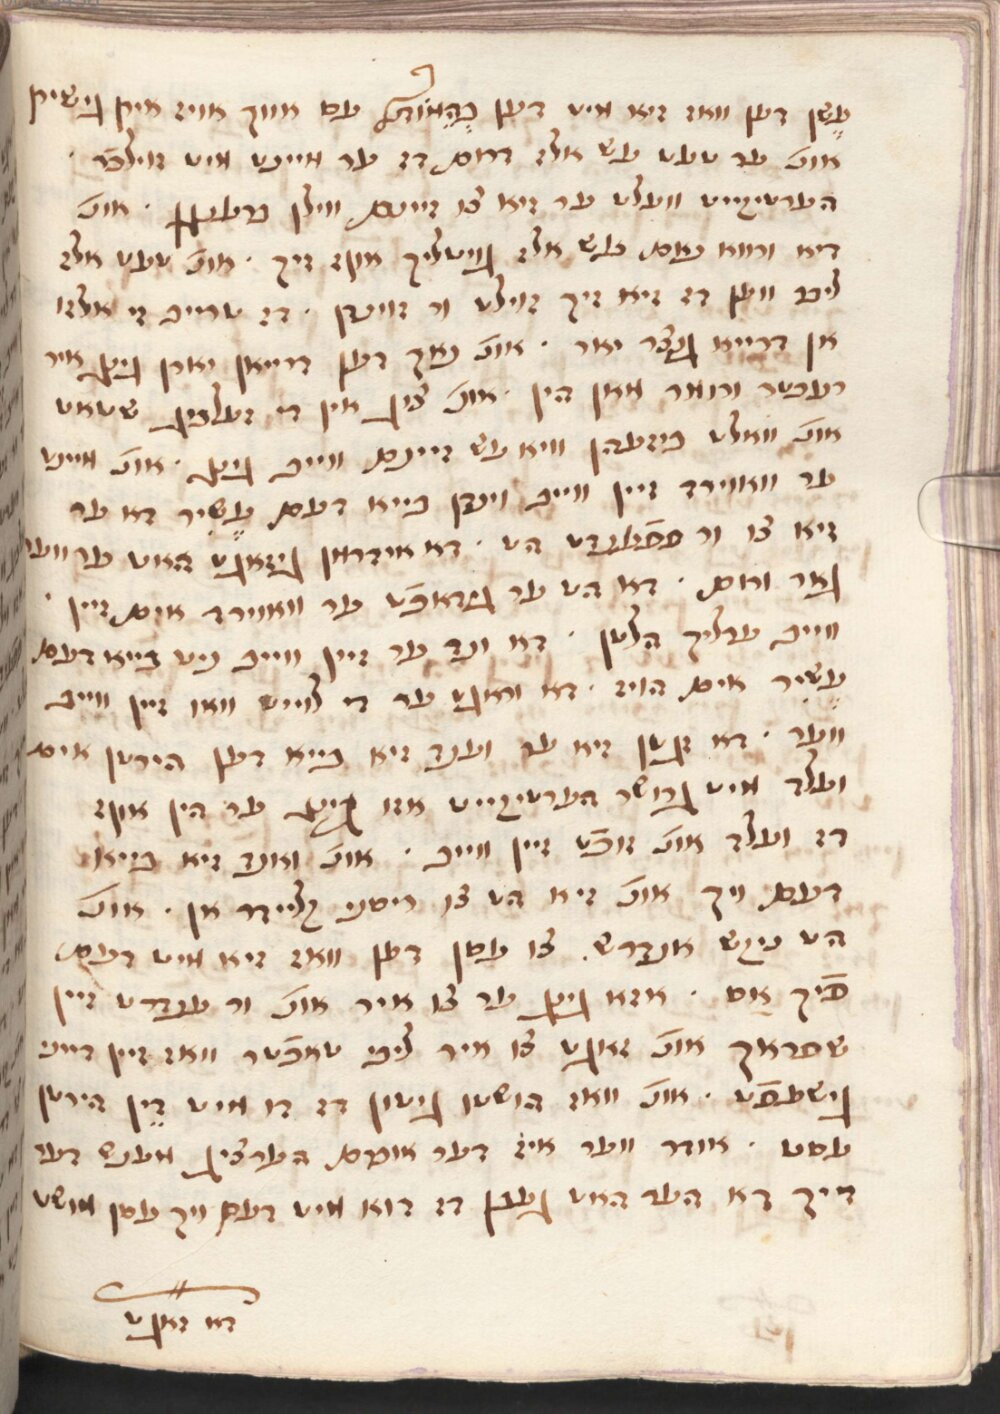 עֶשן דען וואז זיא מיט דען בְּהֵמוֹת עס אויך אויז איין גישיק
אונ' ער טעט עש אלז דרום דז ער מיינט מיט זוילכֿר ·
הערטיקייט וועלט ער זיא צו זיינם ווילן ברענגן · אונ'
דיא ורווא נאם עש אלז גויטליך אונ' זיך · אונ' טעט אלז
ליבר ווען דז זיא זיך זוילט ור זוינדן · דז טרייב זי אלזו
אן דרייא גנצר יאר · אונ' נאך דען דרייאן יארן גינג איר
רעכטר ורומר מאן הין · אונ' צוך אין די זעלביג שטאט
אונ' וואלט ביזעהן וויא עש זיינם ווייב גינג · אונ' מיינט
ער וואוירד זיין ווייב וינדן בייא דעם עֶשִיר דא ער
זיא צו ור פֿפֿענדט הט · דא אידרמן גיזאגט האט ער ווער
גאר ורום · דא הט ער גידאכֿט ער וואוירד אים זיין ·
ווייב ערליך הלטן · דא ונד ער זיין ווייב ניט בייא דעם
עֶשִיר אים הויז · דא וראגט ער די לוייט וואו זיין ווייב
ווער · דא זגטן זיא ער וענד זיא בייא דען הירטן אים
ועלד מיט גרושר הערטיקייט אזו גינג ער הין אויז
דז ועלד אונ' זוכֿט זיין ווייב · אונ' ואנד זיא בייא
דעם ויך אונ' זיא הט צו ריסני קליידר אן · אונ'
הט ניקש אנדרש צו עסן דען וואז זיא מיט דעם
ויך אס · אזא גינג ער צו איר אונ' ור ענדרט זיין
שפראך אונ' זאגט צו איר ליבי טאכֿטר וואז זיין דייני
גישעפֿט · אונ' וואז הושטו גיטון דז דו מיט דֶין הירטן
עסט · אודר ווער איז דער אומם הערציג מענש דער
דיך דא הער האט געבן דז דוא מיט דעם ויך עסן מושט
דא זאגט